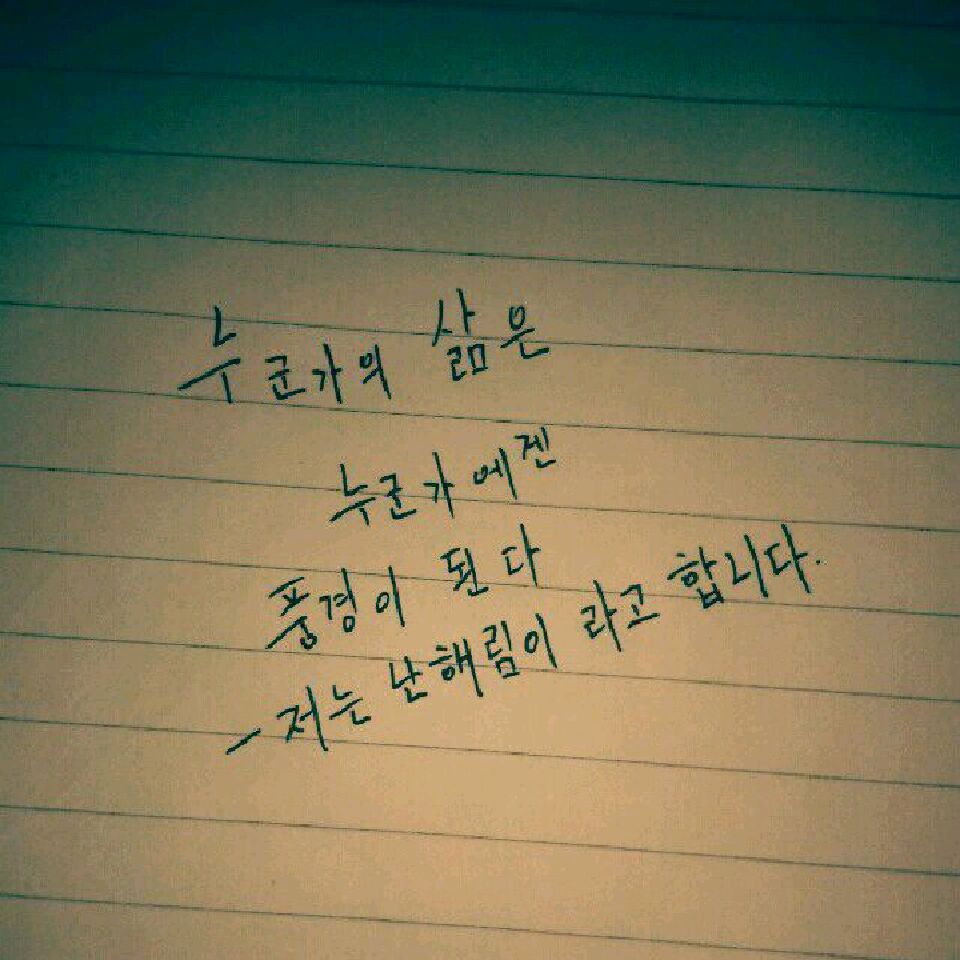 누군가의 삶은
누군가에겐
풍경이 된다
- 저는 난해림이 라고 합니다.